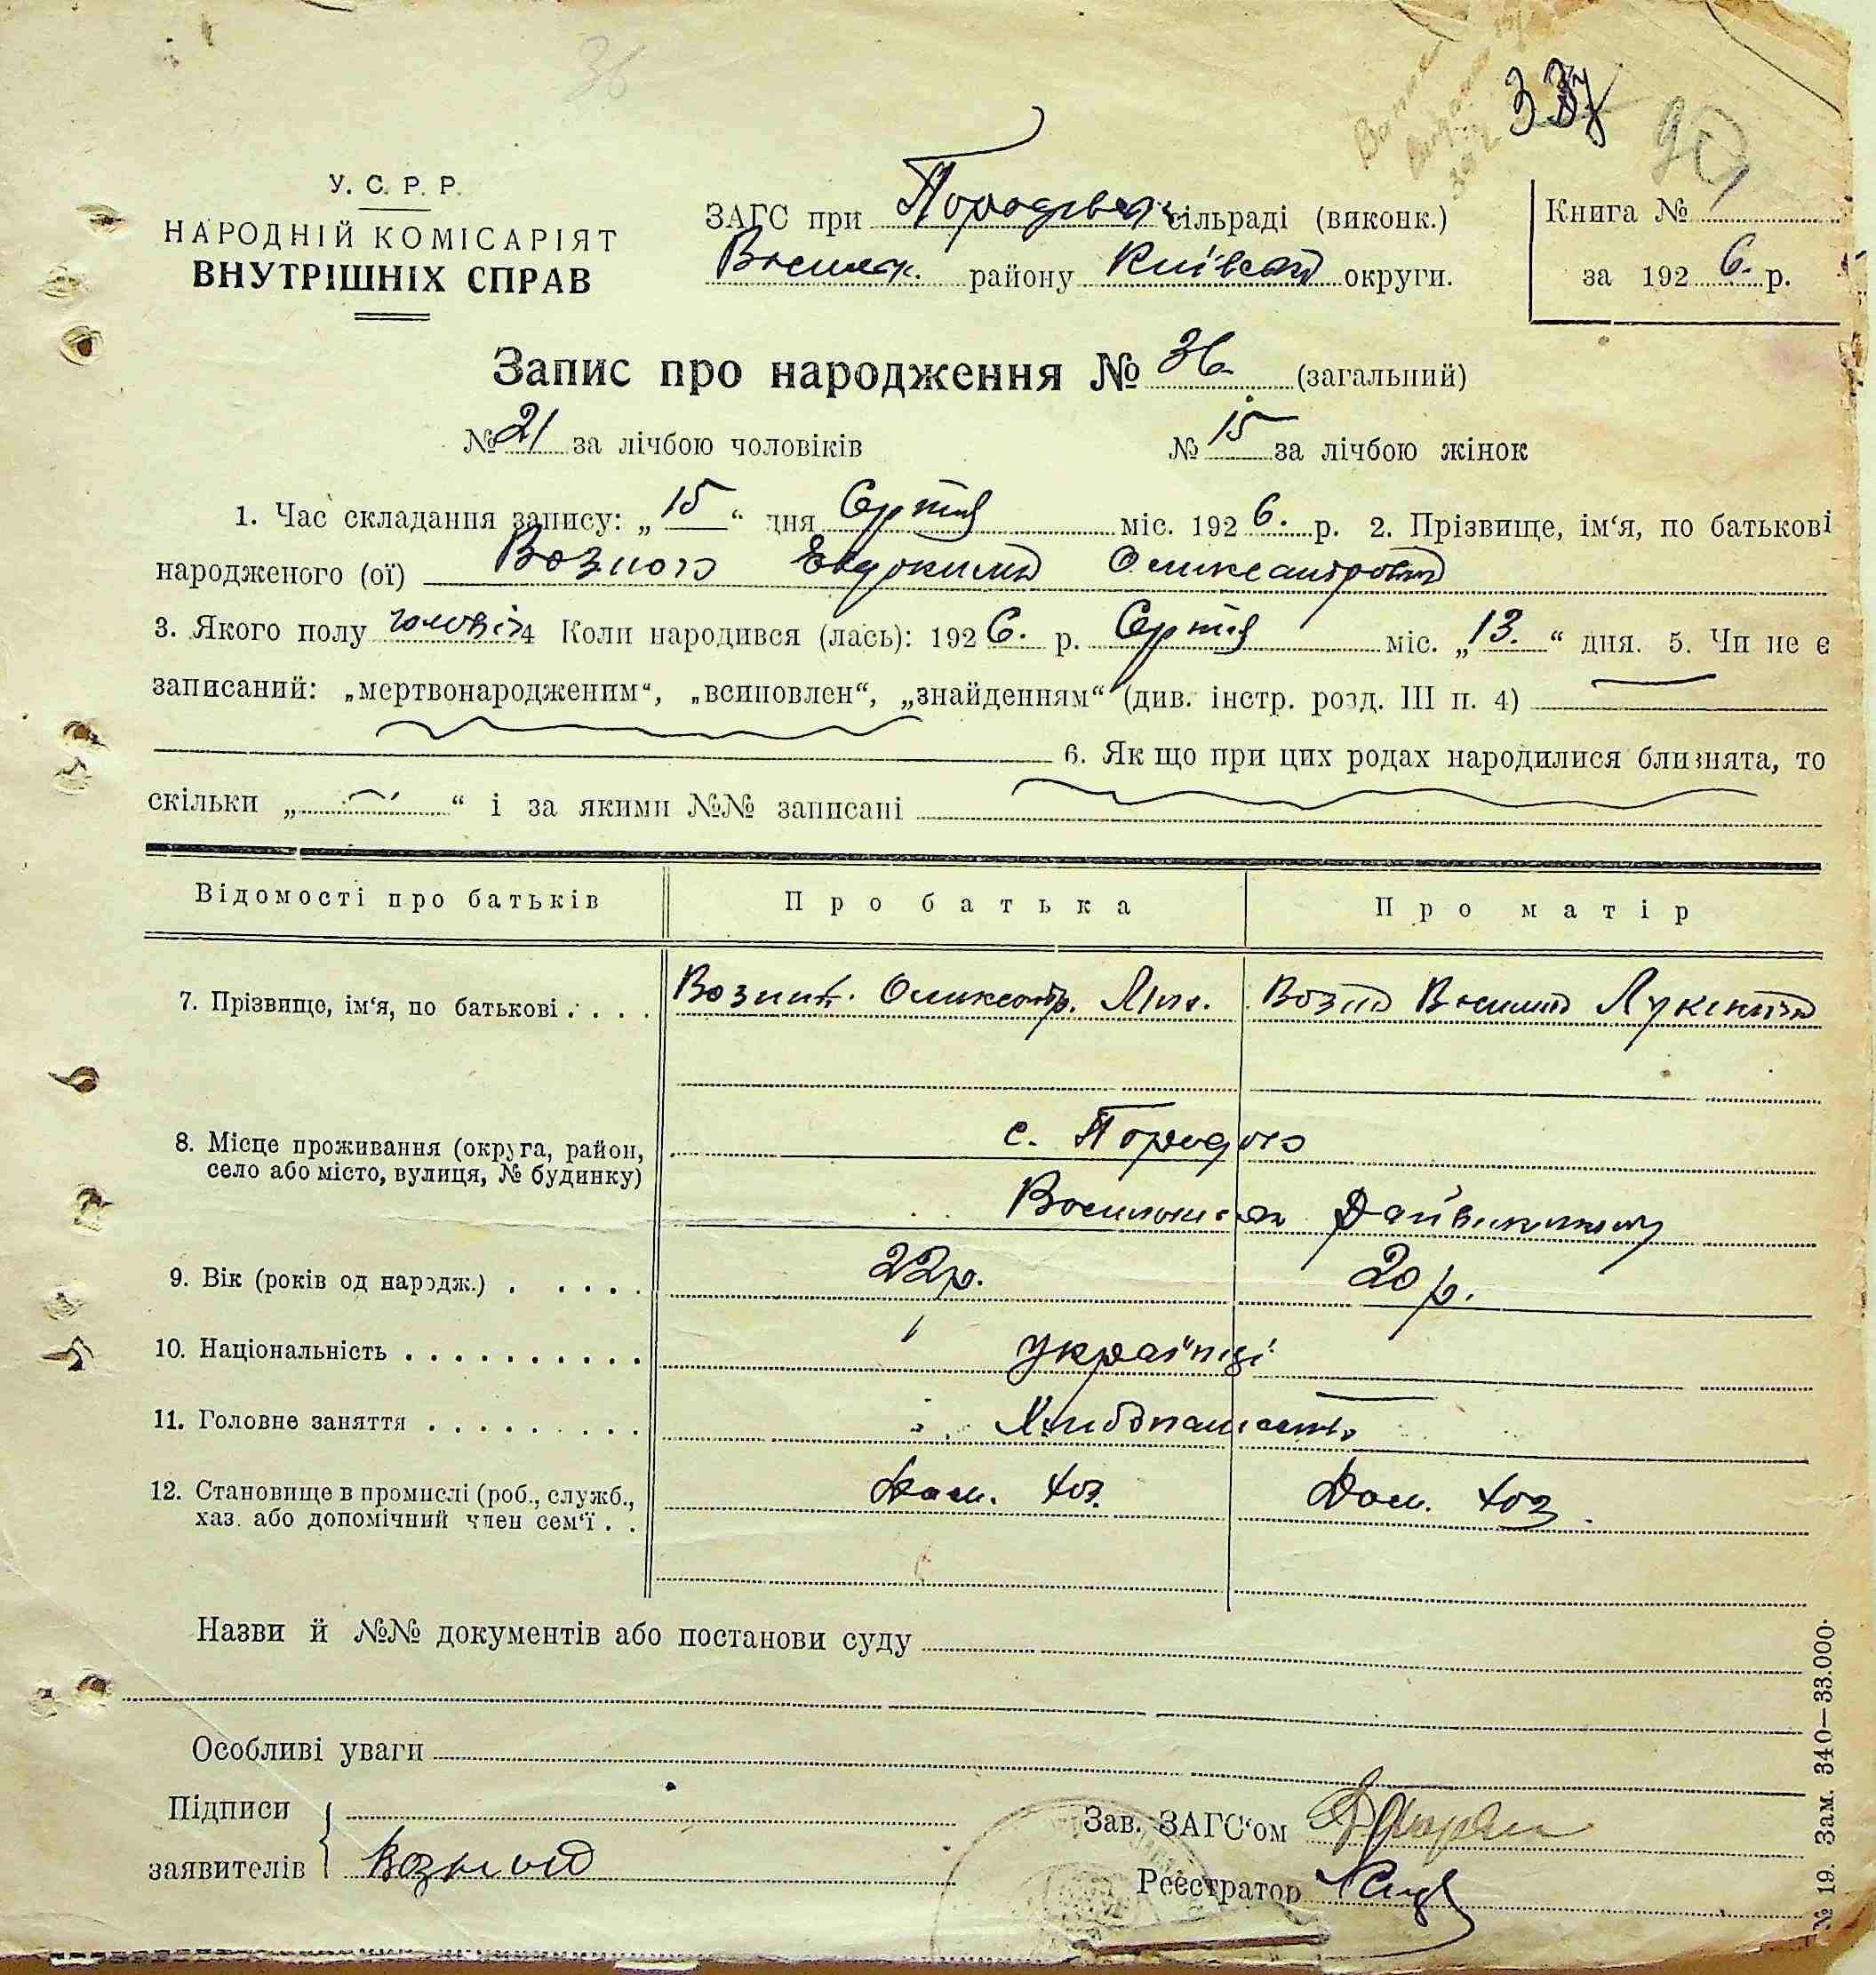 36
337
90
У. С. Р. Р.
НАРОДНІЙ КОМІСАРІЯТ
ВНУТРІШНІХ СПРАВ
ЗАГС при сільраді (виконк.)
району Київської округи.
Книга №
за 1926. р.
Запис про народження № 36 (загальний)
№ 21 за лічбою чоловіків № 15 за лічбою жінок
1. Час складання запису: „15“ дня Серпня міс. 1926. р. 2. Прізвище, ім‘я, по батькові
народженого (ої) Возного Евдокима Олександров
3. Якого полу чоловіч 4 Коли народився (лась): 1926. р. Серпня міс. „13.“ дня. 5. Чи не є
записаний: „мертвонародженим“, „всиновлен“, „знайденням“ (див. інстр. розд. III п. 4)
6. Як що при цих родах народилися близнята, то
скільки „ “ і за якими №№ записані
Відомості про батьків Про батька Про матір
7. Прізвище, ім‘я, по батькові . . . . Возний Возна
8. Місце проживання (округа, район,
село або місто, вулиця, № будинку)
с.
9. Вік (років од народж.) . . . . . 22р. 20 р.
10. Національність . . . . . . . . . . українці
11. Головне заняття . . . . . . . . . Хлибопашест
12. Становище в промислі (роб., служб.,
хаз. або допомічний член сем‘ї . .
Дом. хоз. Дом. хоз.
Назви й №№ документів або постанови суду
Особливі уваги
Підписи
заявителів Возный
Зав. ЗАГС‘ом
Реєстратор
№ 19. Зам. 340—33.000.